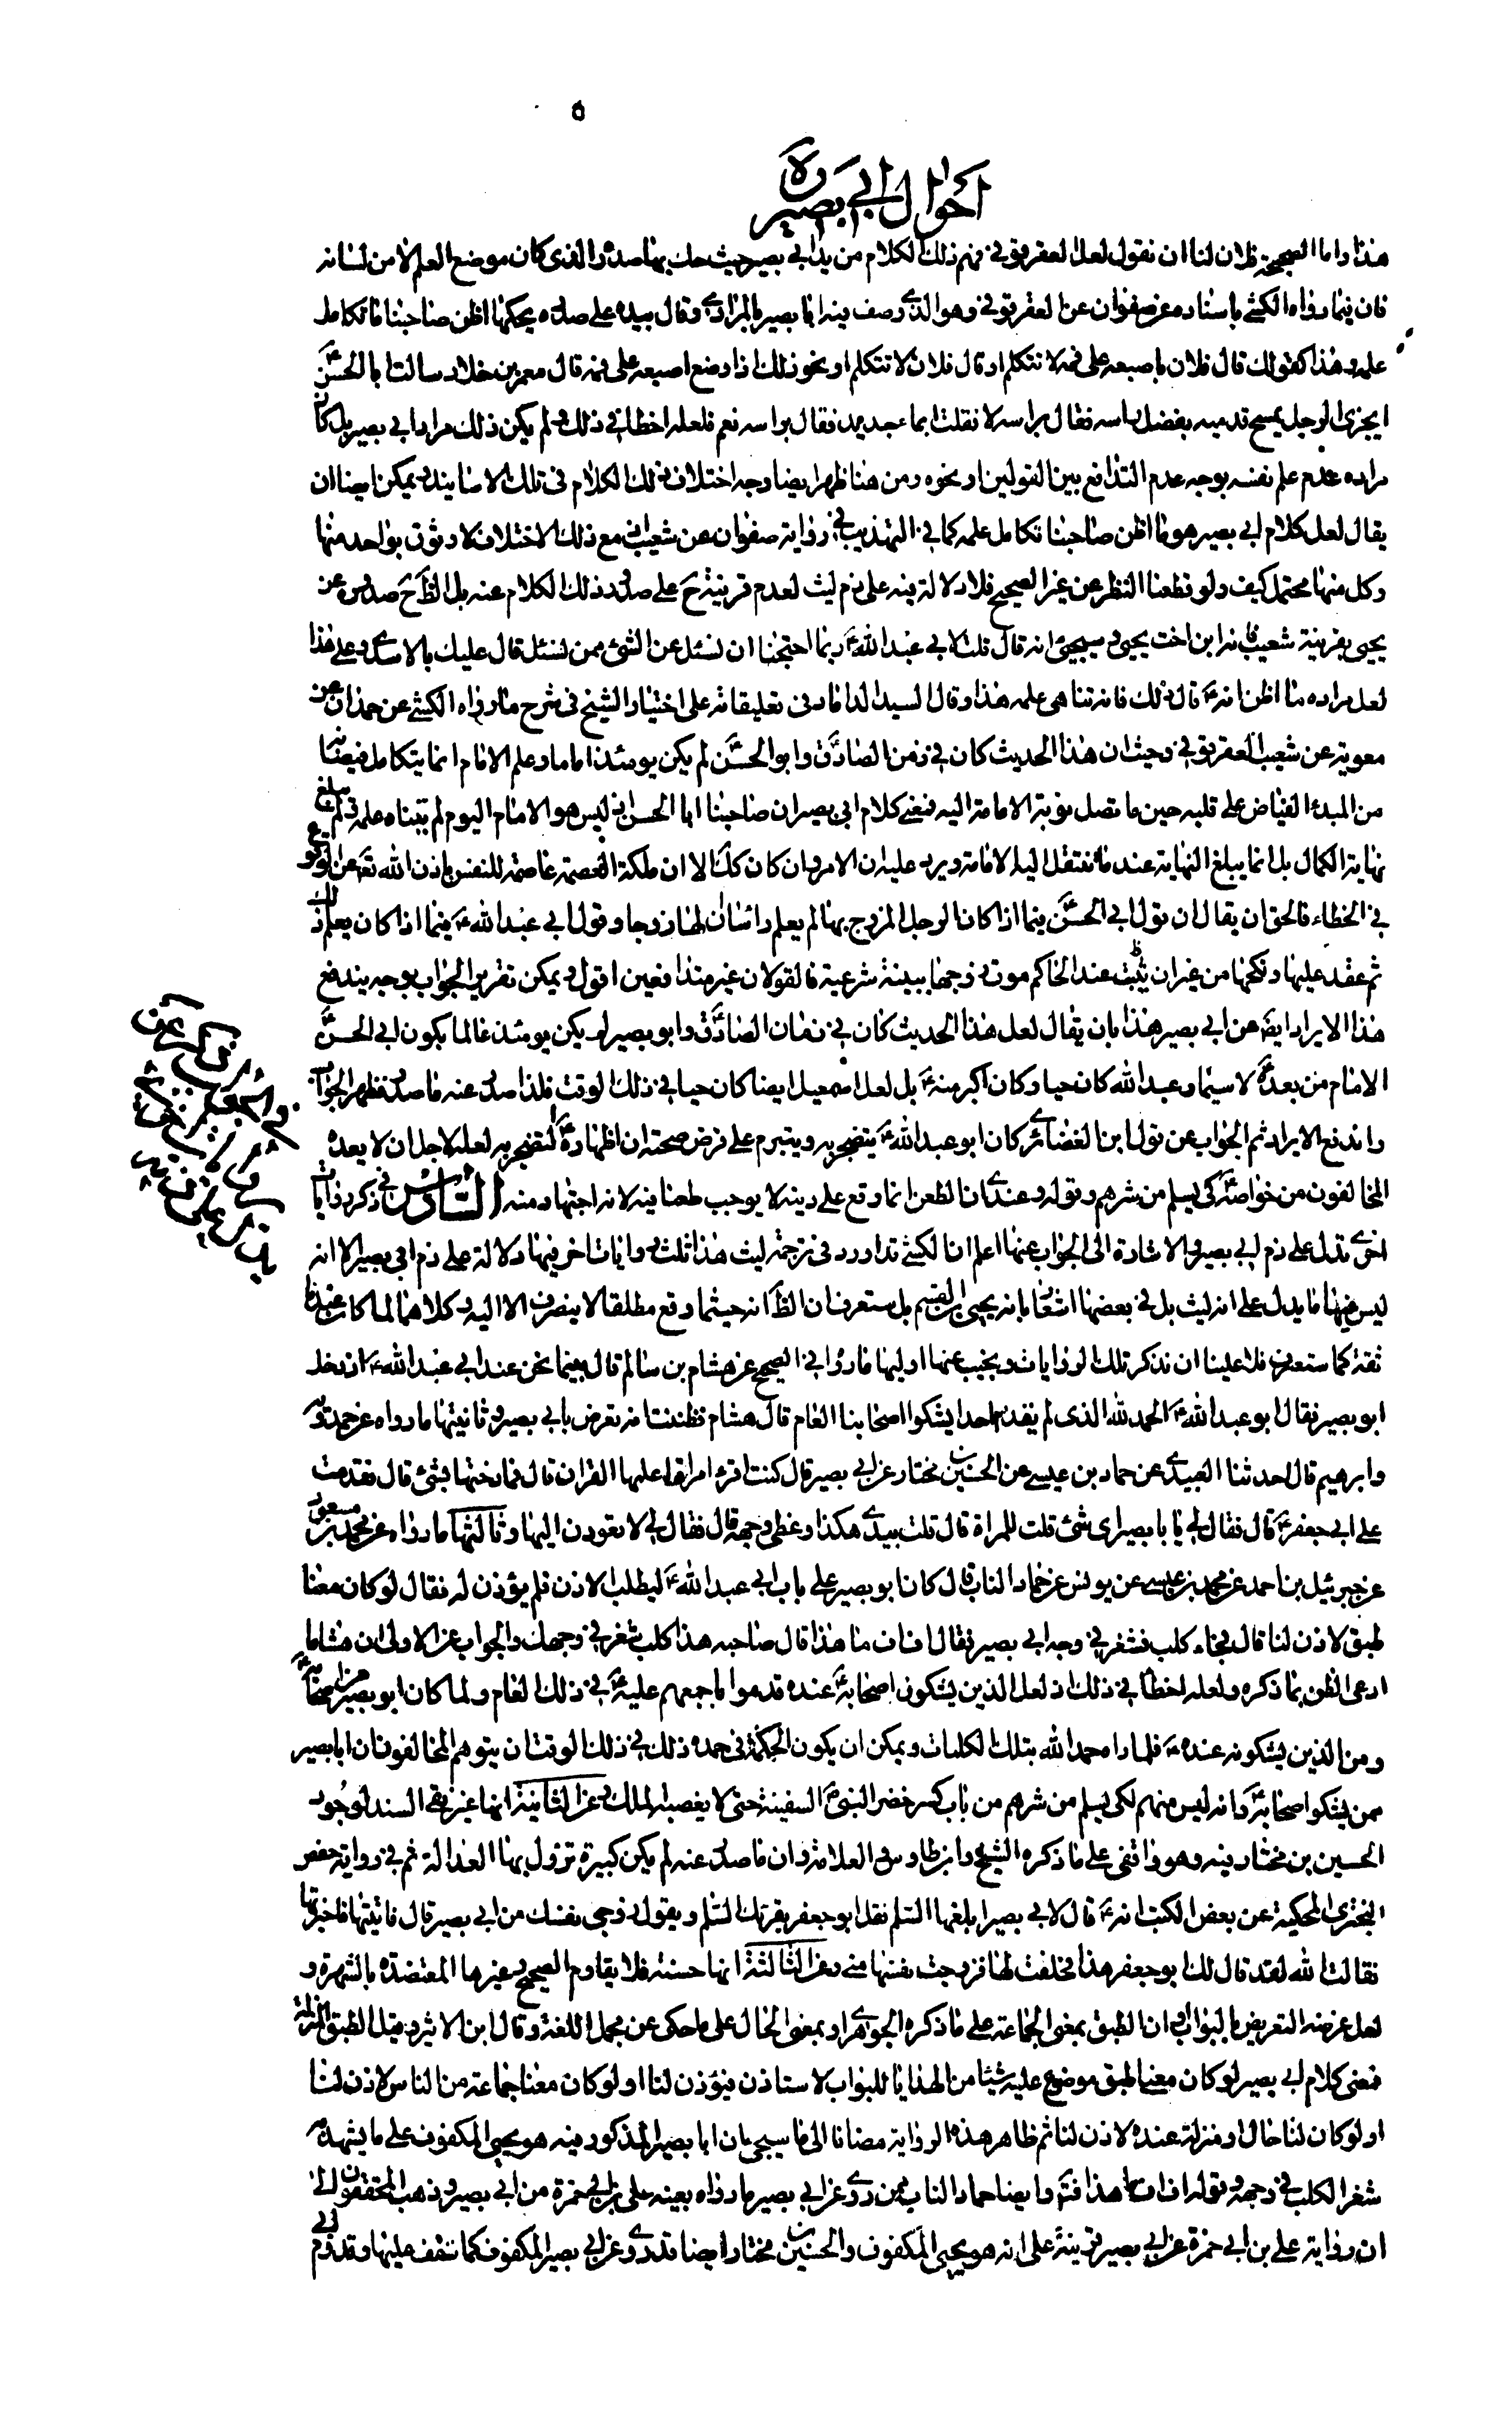 ٥
احوال ابي بصير ره
هذا واما الصحيحة فلان لنا ان نقول لعل العقرقوفي فهم ذلك الكلام من يد ابي بصير حيث حك بها صدره الذي كان موضع العلم لا من لسانه
فان فيما رواه الكشي باسناده عن صفوان عن العقرقوفي وهو الذي وصف فيه ابا بصير بالمرادي وقال بيده على صدره يحكها اظن صاحبنا ما تكامل
علمه وهذا كقولك قال فلان باصبعه على فمه لا تتكلم او قال فلان لا تتكلم او نحو ذلك اذا وضع اصبعه على فمه قال معمر بن خلاد سالت ابا الحسن ع
ايجزي الرجل يمسح قدميه بفضل راسه فقال براسه لا فقلت ابماء جديد فقال براسه نعم فلعله اخطا في ذلك ولم يكن ذلك مراد ابي بصير بل كان
مراده عدم علم نفسه بوجه عدم التدافع بين القولين او نحوه ومن هنا ظهر ايضا وجه اختلاف ذلك الكلام في تلك الاسانيد ويمكن ايضا ان
يقال لعل كلام ابي بصير هو ما اظن صاحبنا تكامل علمه كما في التهذيب في رواية صفوان عن شعيب اذ مع ذلك الاختلاف لا وثوق بواحد منها
وكل منها محتمل كيف ولو قطعنا النظر عن غير الصحيح فلا دلالة فيه على ذم ليث لعدم قرينة ح على صدور ذلك الكلام عنه بل الظ ح صدوره عن
يحيى بقرينة شعيب فانه ابن اخت يحيى وسيجيئ انه قال قلت لابي عبد الله ع ربما احتجنا ان نسئل عن الشئ ممن نسئل قال عليك بالاسدي وعلى هذا
لعل مراده ما اظن انه ع قال ذلك فانه تناهى علمه هذا وقال السيد الداماد في تعليقاته على اختيار الشيخ في شرح ما رواه الكشي عن حمدان عن
معوية عن شعيب العقرقوفي وحيث ان هذا الحديث كان في زمن الصادق ع وابو الحسن ع لم يكن يومئذ اماما وعلم الامام انما يتكامل فيضانه
من المبدء الفياض على قلبه حين ما تصل نوبة الامامة اليه فمعنى كلام ابي بصير ان صاحبنا ابا الحسن اذ ليس هو الامام اليوم لم يتناه علمه ولم يبلغ
نهاية الكمال بل انما يبلغ النهاية عند ما تنتقل اليه الامامة ويرد عليه ان الامر وان كان كك الا ان ملكة العصمة عاصمة للنفس باذن الله تع عن الوقوع
في الخطاء فالحق ان يقال ان قول ابي الحسن ع فيما اذا كان الرجل المزوج بها لم يعلم راسا ان لها زوجا وقول ابي عبد الله ع فيما اذا كان يعلم ذلك
ثم عقد عليها ونكحها من غير ان يثبت عند الحاكم موت زوجها ببينة شرعية فالقولان غير متدافعين اقول ويمكن تقرير الجواب بوجه يندفع
هذا الايراد ايضا عن ابي بصير هذا بان يقال لعل هذا الحديث كان في زمان الصادق ع وابو بصير لم يكن يومئذ عالما بكون ابي الحسن ع
الامام من بعده ع لا سيما وعبد الله كان حيا وكان اكبر منه ع بل لعل اسمعيل ايضا كان حيا في ذلك الوقت فلذا صدر عنه ما صدر فظهر الجواب
واندفع الايراد ثم الجواب عن قول ابن الغضائري كان ابو عبد الله ع يتضجر به ويتبرم على فرض صحته ان اظهاره ع التضجر به لعله لاجل ان لا يعده
المخالفون من خواصه ع كي يسلم من شرهم وقوله وعندي ان الطعن انما وقع على دينه لا يوجب طعنا فيه لانه اجتهاد منه السادس في ذكر روايات
اخرى تدل على ذم ابي بصير والاشارة الى الجواب عنها اعلم ان الكشي قد اورد في ترجمة ليث هذا ثلث روايات اخر فيها دلالة على ذم ابي بصير الا انه
ليس فيها ما يدل على انه ليث بل في بعضها اشعار بانه يحيى بن القسم بل ستعرف ان الظ انه حيثما وقع مطلقا لا ينصرف الا اليه وكلاهما لما كان عندنا
ثقة كما ستعرف فلا علينا ان نذكر تلك الروايات ونجيب عنها اوليها ما رواه في الصحيح عن هشام بن سالم قال بينما نحن عند ابي عبد الله ع اذ دخل
ابو بصير فقال ابو عبد الله ع الحمد لله الذي لم يقدم احد يشكوا اصحابنا العام قال هشام فظننت انه تعرض بابي بصير وثانيتها ما رواه عن حمدويه
وابرهيم قال حدثنا العبيدي عن حماد بن عيسى عن الحسين بن مختار عن ابي بصير قال كنت اقرء امراة اعلمها القران قال فمازحتها بشئ قال فقدمت
على ابي جعفر ع قال فقال لي يا با بصير اي شئ قلت للمراة قال قلت بيدي هكذا وغطى وجهه قال فقال لي لا تعودن اليها وثالثتها ما رواه عن محمد بن مسعود
عن جبرئيل بن احمد عن محمد بن عيسى عن يونس عن حماد الناب قال كان ابو بصير على باب ابي عبد الله ع ليطلب الاذن فلم يؤذن له فقال لو كان معنا
طبق لاذن لنا قال فجاء كلب فشغر في وجه ابي بصير فقال اف اف ما هذا قال صاحبه هذا كلب شغر في وجهك والجواب عن الاولى ان هشاما
ادعى الظن بما ذكره ولعله اخطا في ذلك اذ لعل الذين يشكون اصحابه ع عنده قدموا باجمعهم عليه ع في ذلك العام ولما كان ابو بصير من اصحابه ع
ومن الذين يشكونه عنده ع فلما راه حمد الله بتلك الكلمات ويمكن ان يكون الحكمة في حمده ذلك في ذلك الوقت ان يتوهم المخالفون ان ابا بصير
ممن يشكوا اصحابه ع وانه ليس منهم لكي يسلم من شرهم من باب كسر خضر النبي ع السفينة حتى لا يغصبها الملك وعن الثانية انها غير نقي السند لوجود
الحسين بن مختار فيه وهو واقفي على ما ذكره الشيخ وابن طاوس والعلامة وان ما صدر عنه لم يكن كبيرة تزول بها العدالة ثم في رواية حفص
البختري المحكية عن بعض الكتب انه ع قال لابي بصير ابلغها السلم فقل ابو جعفر يقرئك السلم ويقول زوجي نفسك من ابي بصير قال فاتيتها فاخبرتها
فقالت الله لقد قال لك ابو جعفر هذا فحلفت لها فزوجت نفسها مني وعن الثالثة انها حسنة فلا يقاوم الصحيح وغيرها المعتضدة بالشهرة و
لعل غرضه التعريض بالبواب او ان الطبق بمعنى الجماعة على ما ذكره الجوهري او بمعنى الحال على ما حكى عن مجمل اللغة وقال ابن الاثير وقيل الطبق المنزلة
فمعنى كلام ابي بصير لو كان معنا طبق موضوع عليه شيئا من الهدايا للبواب لاستاذن فيؤذن لنا او لو كان معنا جماعة من الناس لاذن لنا
او لو كان لنا حال او منزلة عنده لاذن لنا ثم ظاهر هذه الرواية مضافا الى ما سيجئ ان ابا بصير المذكور فيه هو يحيى المكفوف على ما يشهد به
شغر الكلب في وجهه وقوله اف اف ما هذا فتم وايضا حماد الناب ممن روى عن ابي بصير ما رواه بعينه علي بن ابي حمزة من ابي بصير وذهب المحققون الى
ان رواية علي بن ابي حمزة عن ابي بصير قرينة على انه هو يحيى المكفوف والحسين بن مختار ايضا قد روى عن ابي بصير المكفوف كما ستقف عليها وقد روى في